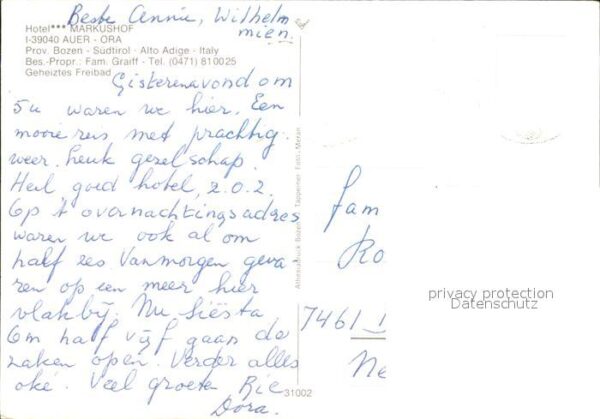 Beste Annie, Wilhelm
mien.
Hotel*** MARKUSHOF
I-39040 AUER - ORA
Prov. Bozen - Südtirol - Alto Adige - Italy
Bes.-Propr.: Fam. Graiff - Tel. (0471) 810025
Geheiztes Freibad
Gisterenavond om
5u waren we hier. Een
mooie reis met prachtig
weer. leuk gezelschap.
Heel goed hotel, z.o.z.
Op 't overnachtingsadres
waren we ook al om
half zes Vanmorgen geva-
ren op een meer hier
vlakbij. Nu siësta
Om half vijf gaan de
zaken open. Verder alles
oké. Veel groeten Rie
Dora.
Athesiadruck Bozen Tappeiner Foto, Meran
31002
fam
Ko
7461
Ne
privacy protection
Datenschutz